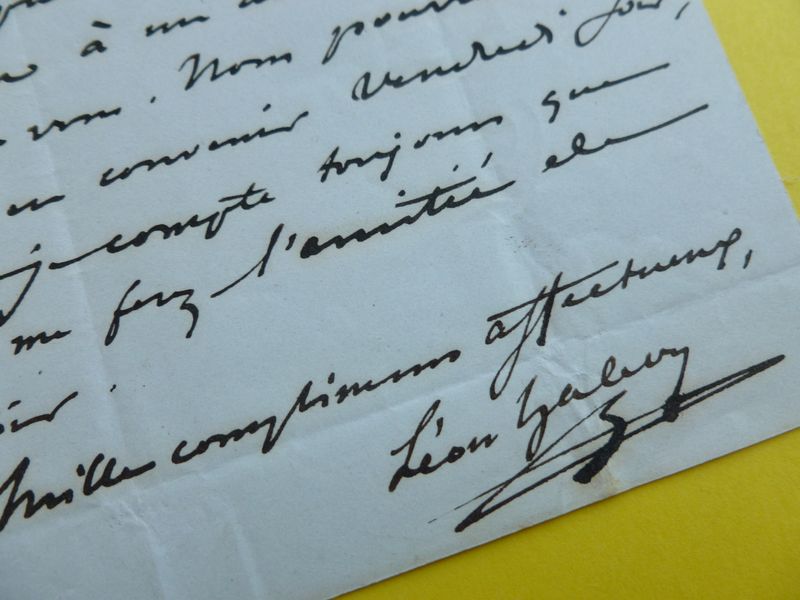 à un
. Nous pouv
en convenir vendredi soir,
je compte toujours que
me ferez l'amitié de
Mille complimens affectueux,
Léon Halévy